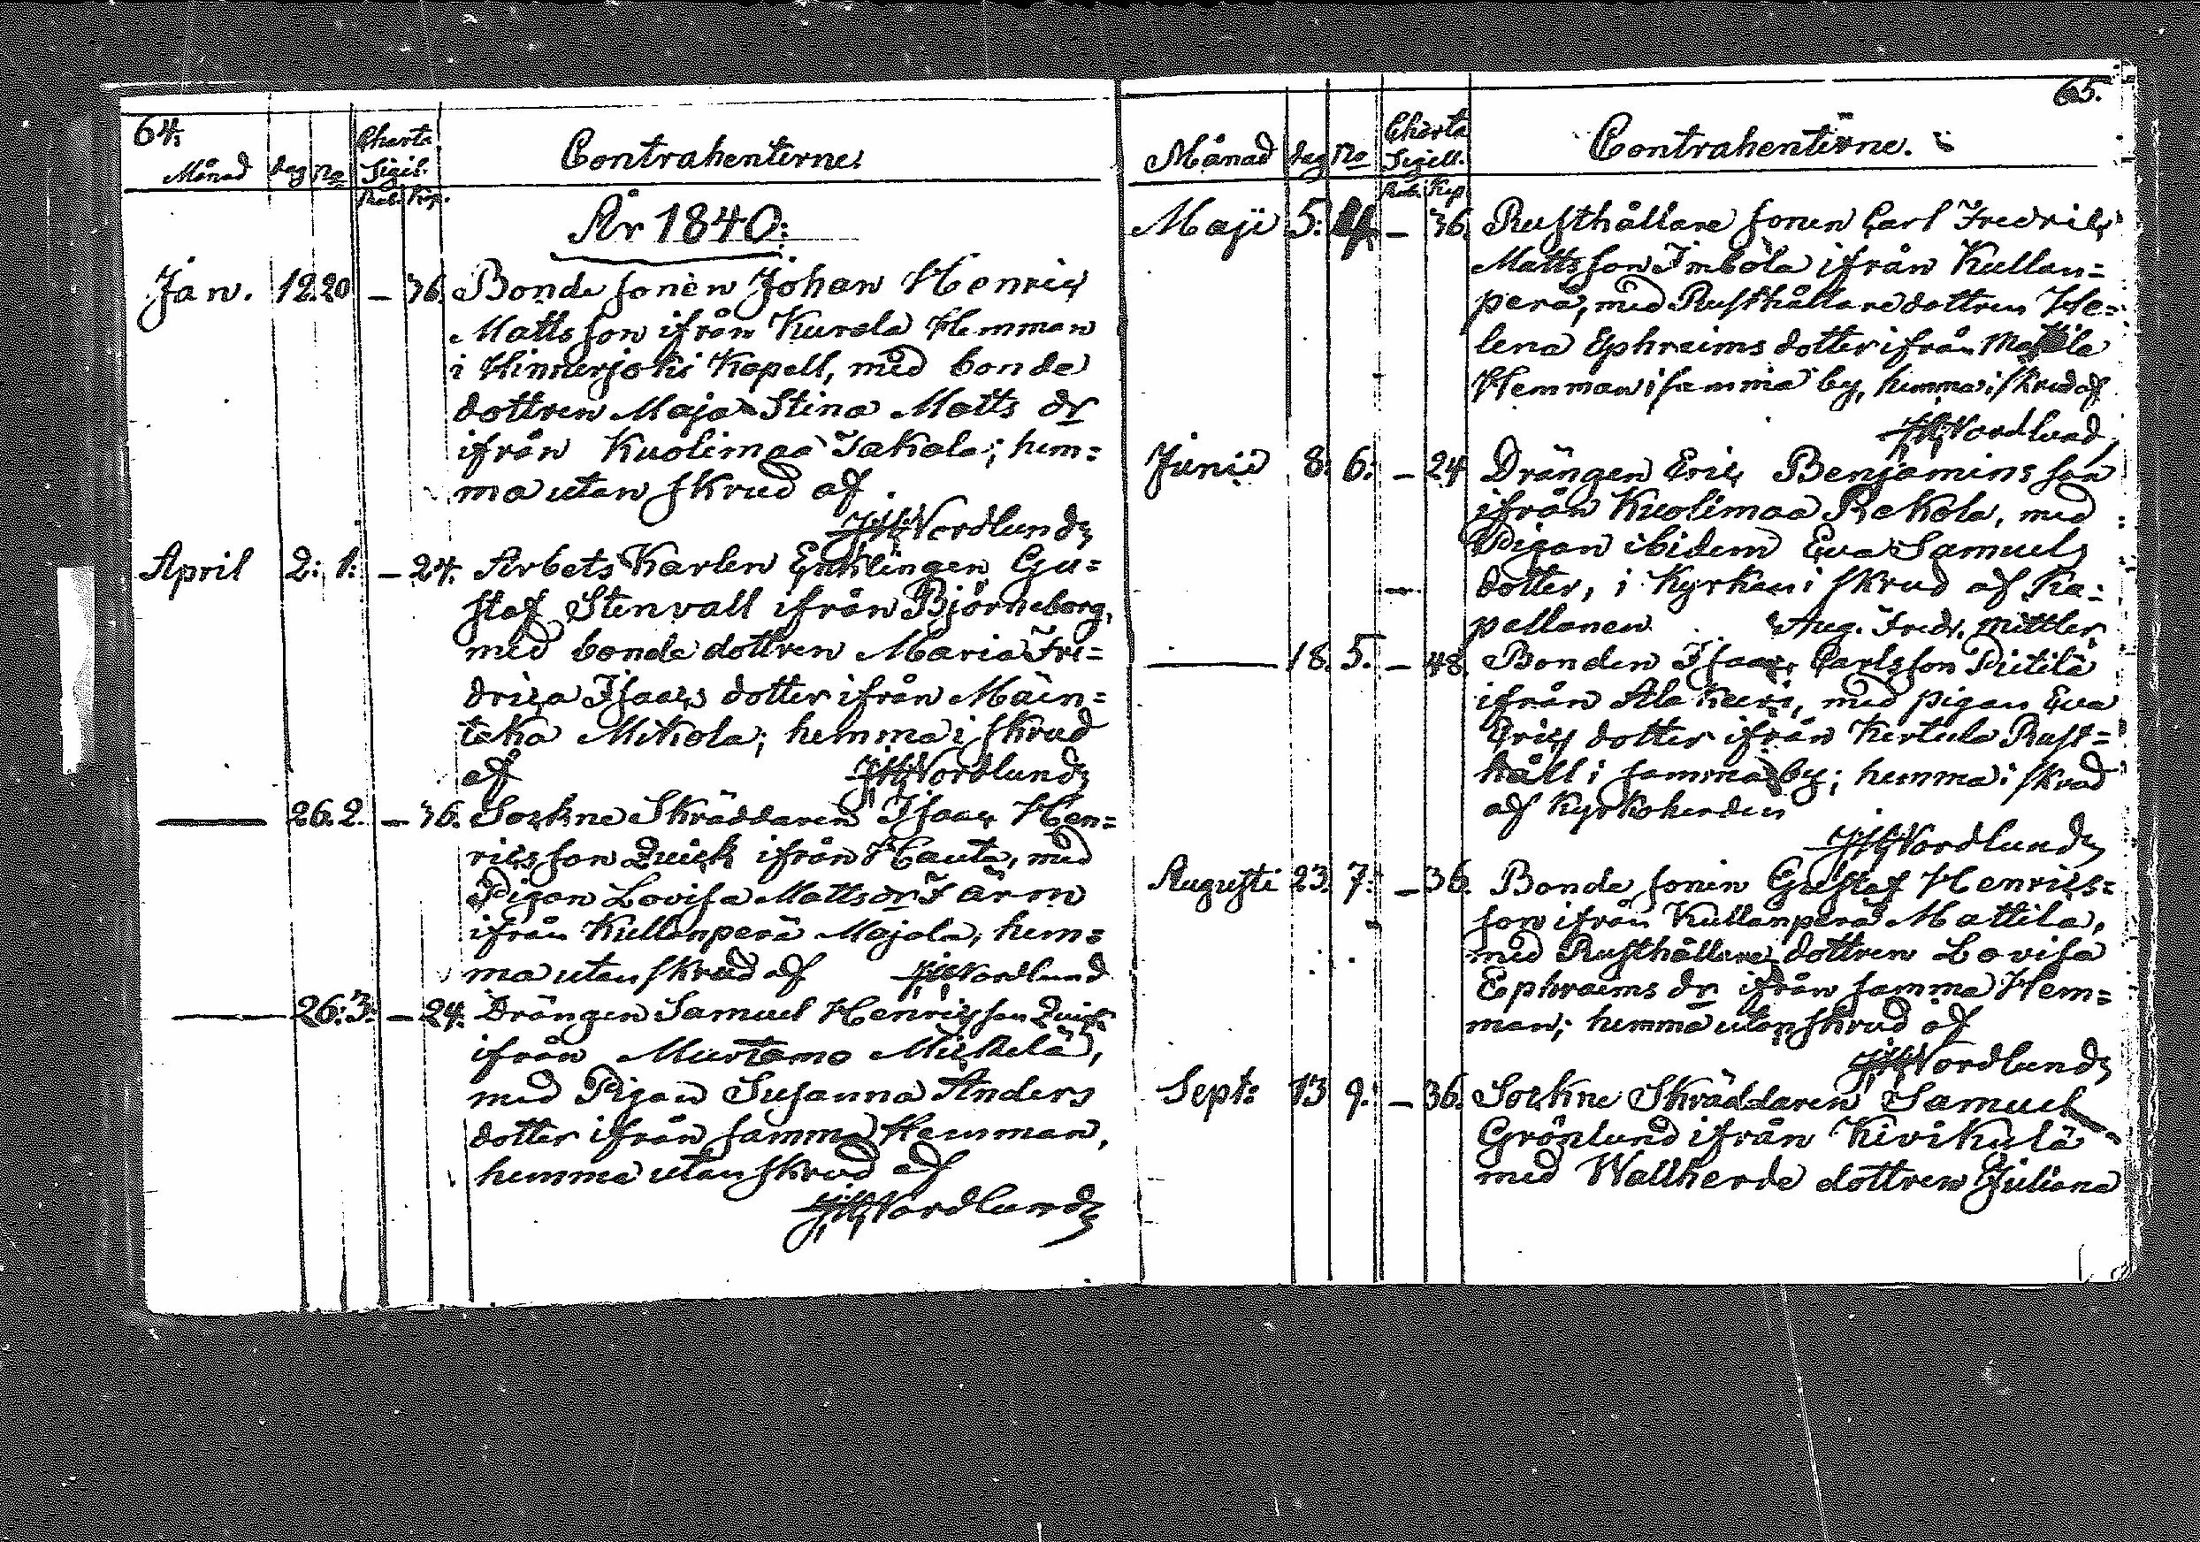 64.
Månad dag No Charta Sigil. Contrahenterne
Rub. Kop.
År 1840:
Jan. 12. 20 — 36. Bonde sonen Johan Henric
Mattsson ifrån Kurola Hemman
i Hinnerjoki Kapell, med bonde
dottren Maja Stina Matts dr
ifrån Kuolimaa Jakola; hem=
ma utan skrud af
Nordlund
April 2. 1. — 24. Arbets Karlen Enklingen Gu=
staf Stenvall ifrån Björneborg,
med bonde dottren Maria Fre=
drica Isaacs dotter ifrån Mäen=
taka Mikola; hemma i skrud
af Nordlund
— 26. 2. — 36. Sockne Skräddaren Isaac Hen=
ricsson Quick ifrån Hauta, med
Pigan Lovisa Matts dr Färm
ifrån Kullanperä Majala, hem=
ma utan skrud af Nordlund
— 26. 3. — 24. Drängen Samuel Henricsson Quick
ifrån Murtamo Mickelä,
med Pigan Susanna Anders
dotter ifrån samma Hemman,
hemma utan skrud af
Nordlund
65.
Månad dag No Charta Sigill. Contrahenterne.
Rub. Kop
Maji 5. 4. — 36. Rusthållare sonen Carl Fredric
Mattsson Imbola ifrån Kullan=
perä, med Rusthållare dottren He=
lena Ephraims dotter ifrån
Hemman i samma by, hemma i skrud af
Nordlund
Junii 8. 6. — 24 Drängen Eric Benjaminsson
ifrån Kuolimaa Rekola, med
Pigan ibidem Eva Samuels
dotter, i Kyrkan i skrud af Ka=
pellanen Aug. Fredr. Mittler
— 18. 5. — 48. Bonden Isaac Carlsson Pietilä
ifrån Ala Keeri, med pigan Eva
Erics dotter ifrån Kertula Rust=
håll i samma by; hemma i skrud
af Kyrkoherden
Nordlund
Augusti 23. 7. — 36. Bonde sonen Gustaf Henrics=
son ifrån Kullanperä Mattila,
med Rusthållare dottren Lovisa
Ephraims dr ifrån samma Hem=
man; hemma utan skrud af
Nordlund
Sept: 13 9. — 36. Sockne Skräddaren Samuel
Grönlund ifrån Kivikulä
med Wallherde dottren Juliana